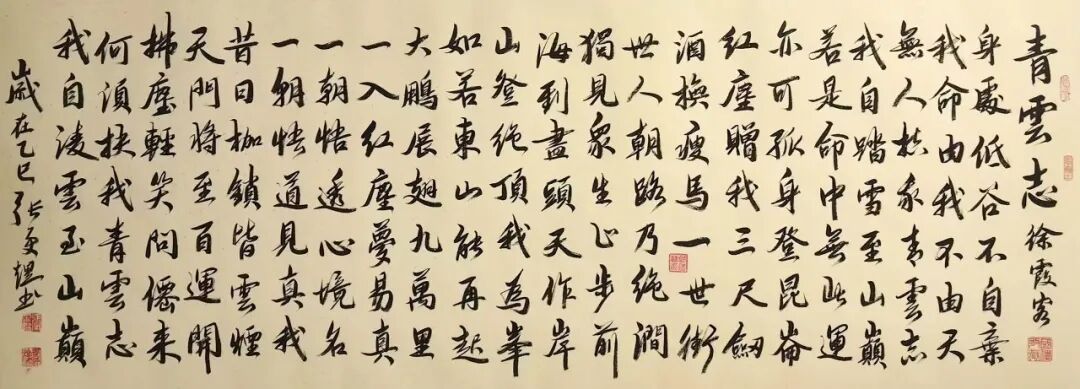 青雲志 徐霞客
身處低谷不自棄
我命由我不由天
無人扶我青雲志
我自踏雪至山巔
若是命中無此運
亦可孤身登昆崙
紅塵贈我三尺劍
酒撫瘦馬一世
世人朝路乃絕澗
獨見眾生止步前
海到盡頭天作岸
山登絕頂我為峯
如若東山能再起
大鵬展翅九萬里
一入紅塵夢易真
一朝悟透心境名
一朝悟道見真我
昔日枷鎖皆雲煙
天門將至百運開
拂塵輕笑問僊來
何須扶我青雲志
我自淩雲至山巔
歲在乙巳 張 書